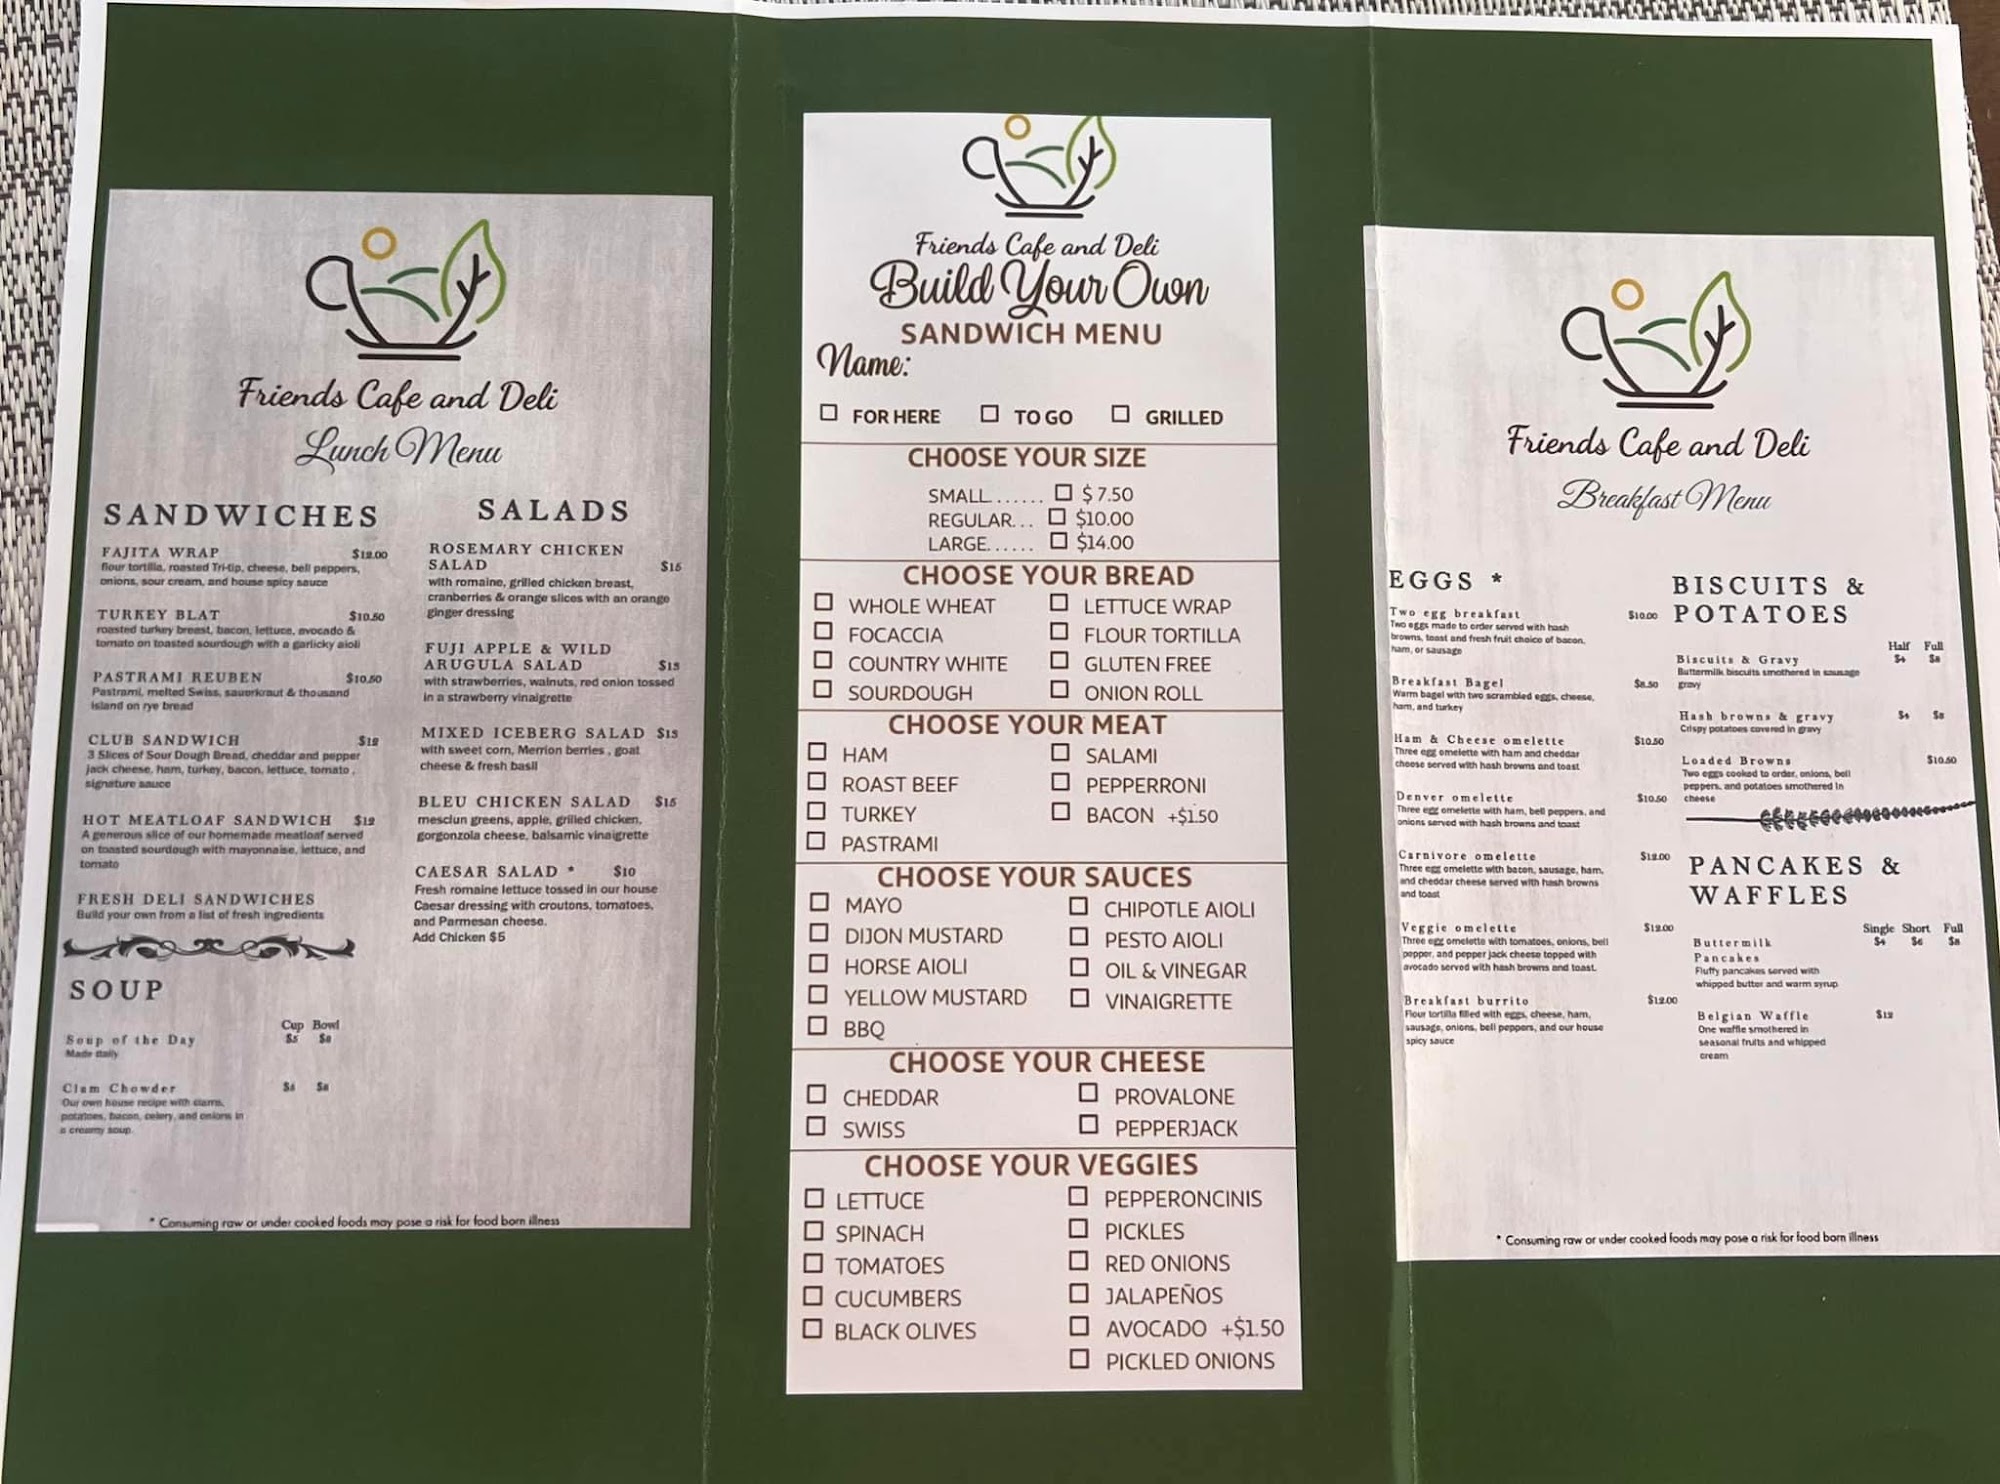 Friends Cafe and Deli
Lunch Menu
SANDWICHES
FAJITA WRAP $12.00
flour tortilla, roasted Tri-tip, cheese, bell peppers,
onions, sour cream, and house spicy sauce
TURKEY BLAT $10.50
roasted turkey breast, bacon, lettuce, avocado &
tomato on toasted sourdough with a garlicky aioli
PASTRAMI REUBEN $10.50
Pastrami, melted Swiss, sauerkraut & thousand
island on rye bread
CLUB SANDWICH $12
3 Slices of Sour Dough Bread, cheddar and pepper
jack cheese, ham, turkey, bacon, lettuce, tomato,
signature sauce
HOT MEATLOAF SANDWICH $12
A generous slice of our homemade meatloaf served
on toasted sourdough with mayonnaise, lettuce, and
tomato
FRESH DELI SANDWICHES
Build your own from a list of fresh ingredients
SOUP
Cup Bowl
Soup of the Day $5 $8
Made daily
Clam Chowder $8
Our own house recipe with clams,
potatoes, bacon, celery, and onions in
a creamy soup.
SALADS
ROSEMARY CHICKEN
SALAD $15
with romaine, grilled chicken breast,
cranberries & orange slices with an orange
ginger dressing
FUJI APPLE & WILD
ARUGULA SALAD $13
with strawberries, walnuts, red onion tossed
in a strawberry vinaigrette
MIXED ICEBERG SALAD $13
with sweet corn, Merrion berries , goat
cheese & fresh basil
BLEU CHICKEN SALAD $15
mesclun greens, apple, grilled chicken,
gorgonzola cheese, balsamic vinaigrette
CAESAR SALAD * $10
Fresh romaine lettuce tossed in our house
Caesar dressing with croutons, tomatoes,
and Parmesan cheese.
Add Chicken $5
* Consuming raw or under cooked foods may pose a risk for food born illness
Friends Cafe and Deli
Build Your Own
SANDWICH MENU
Name:
FOR HERE TO GO GRILLED
CHOOSE YOUR SIZE
SMALL...... $ 7.50
REGULAR... $10.00
LARGE...... $14.00
CHOOSE YOUR BREAD
WHOLE WHEAT LETTUCE WRAP
FOCACCIA FLOUR TORTILLA
COUNTRY WHITE GLUTEN FREE
SOURDOUGH ONION ROLL
CHOOSE YOUR MEAT
HAM SALAMI
ROAST BEEF PEPPERRONI
TURKEY BACON +$1.50
PASTRAMI
CHOOSE YOUR SAUCES
MAYO CHIPOTLE AIOLI
DIJON MUSTARD PESTO AIOLI
HORSE AIOLI OIL & VINEGAR
YELLOW MUSTARD VINAIGRETTE
BBQ
CHOOSE YOUR CHEESE
CHEDDAR PROVALONE
SWISS PEPPERJACK
CHOOSE YOUR VEGGIES
LETTUCE PEPPERONCINIS
SPINACH PICKLES
TOMATOES RED ONIONS
CUCUMBERS JALAPEÑOS
BLACK OLIVES AVOCADO +$1.50
PICKLED ONIONS
Friends Cafe and Deli
Breakfast Menu
EGGS *
Two egg breakfast $10.00
Two eggs made to order served with hash
browns, toast and fresh fruit choice of bacon,
ham, or sausage
Breakfast Bagel $8.50
Warm bagel with two scrambled eggs, cheese,
ham, and turkey
Ham & Cheese omelette $10.50
Three egg omelette with ham and cheddar
cheese served with hash browns and toast
Denver omelette $10.50
Three egg omelette with ham, bell peppers, and
onions served with hash browns and toast
Carnivore omelette $12.00
Three egg omelette with bacon, sausage, ham,
and cheddar cheese served with hash browns
and toast
Veggie omelette $12.00
Three egg omelette with tomatoes, onions, bell
pepper, and pepper jack cheese topped with
avocado served with hash browns and toast.
Breakfast burrito $12.00
Flour tortilla filled with eggs, cheese, ham,
sausage, onions, bell peppers, and our house
spicy sauce
BISCUITS &
POTATOES
Half Full
$4 $8
Biscuits & Gravy
Buttermilk biscuits smothered in sausage
gravy
Hash browns & gravy $4 $8
Crispy potatoes covered in gravy
Loaded Browns $10.50
Two eggs cooked to order, onions, bell
peppers, and potatoes smothered in
cheese
PANCAKES &
WAFFLES
Single Short Full
$4 $6 $8
Buttermilk
Pancakes
Fluffy pancakes served with
whipped butter and warm syrup
Belgian Waffle $12
One waffle smothered in
seasonal fruits and whipped
cream
* Consuming raw or under cooked foods may pose a risk for food born illness